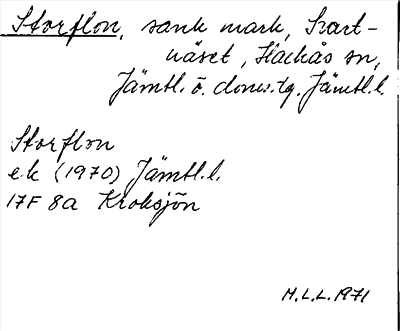 Storflon, sank mark, Svart-
näset, Hackås sn,
Jämtl. ö. doms.tg. Jämtl.l.
Storflon
ek (1970) Jämtl.l.
17F 8a Kroksjön
M.L.L. 1971